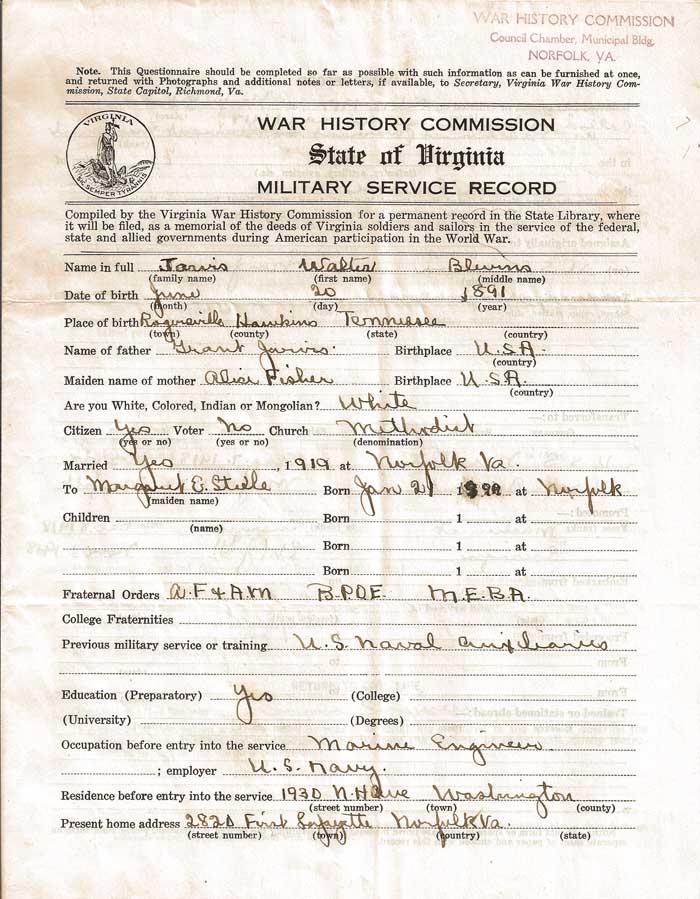 WAR HISTORY COMMISSION
Council Chamber, Municipal Bldg.
NORFOLK, VA.
Note. This Questionnaire should be completed so far as possible with such information as can be furnished at once,
and returned with Photographs and additional notes or letters, if available, to Secretary, Virginia War History Com-
mission, State Capitol, Richmond, Va.
VIRGINIA
SIC SEMPER TYRANNIS
WAR HISTORY COMMISSION
State of Virginia
MILITARY SERVICE RECORD
Compiled by the Virginia War History Commission for a permanent record in the State Library, where
it will be filed, as a memorial of the deeds of Virginia soldiers and sailors in the service of the federal,
state and allied governments during American participation in the World War.
Name in full Jarvis Walter Blevins
(family name) (first name) (middle name)
Date of birth June 20 1891
(month) (day) (year)
Place of birth Rogersville Hawkins Tennessee
(town) (county) (state) (country)
Name of father Grant Jarvis. Birthplace U.S.A.
(country)
Maiden name of mother Alice Fisher Birthplace U.S.A.
(country)
Are you White, Colored, Indian or Mongolian? White
Citizen Yes Voter No Church Methodist
(yes or no) (yes or no) (denomination)
Married Yes, 1919 at Norfolk Va.
To Margaret E. Steele Born Jan 21 1 at Norfolk
(maiden name)
Children Born 1 at
(name)
Born 1 at
Born 1 at
Fraternal Orders A.F & A.M B.P.O.E. M.E.B.A.
College Fraternities
Previous military service or training U.S. Naval Auxiliaries
Education (Preparatory) Yes (College)
(University) (Degrees)
Occupation before entry into the service Marine Engineer
; employer U.S. Navy.
Residence before entry into the service 1930 N.H. Ave Washington
(street number) (town) (county)
Present home address 2820 Lafayette Norfolk Va.
(street number) (town) (country) (state)